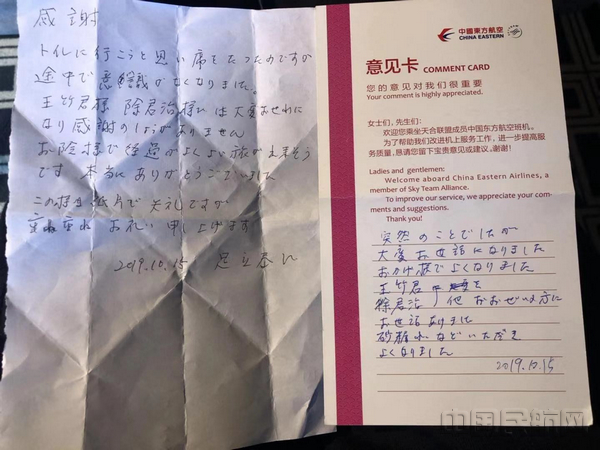 感謝
トイレに行こうと思い席をたったのですが
途中で意識がなくなりました。
王竹君様 徐君浩様には大変お世れに
なり感謝のしようがありません
お陰様で経過がよくよい旅が出来そう
です 本当にありがとうございました
この様な紙片で失礼ですが
重ね重ねお礼申し上げます
2019.10.15
中國東方航空
CHINA EASTERN
意见卡 COMMENT CARD
您的意见对我们很重要
Your comment is highly appreciated.
女士们,先生们:
欢迎您乘坐天合联盟成员中国东方航空班机。
为了帮助我们改进机上服务工作,进一步提高服
务质量,恳请您留下宝贵意见或建议。谢谢!
Ladies and gentlemen:
Welcome aboard China Eastern Airlines, a
member of Sky Team Alliance.
To improve our service, we appreciate your com-
ments and suggestions.
Thank you!
突然のことでしたが
大変お世話になりました
おかげ様でよくなりました
王竹君
徐君浩 他 おおぜい方に
お世話ありました
砂糖水などいただき
よくなりました
2019.10.15
中国民航网